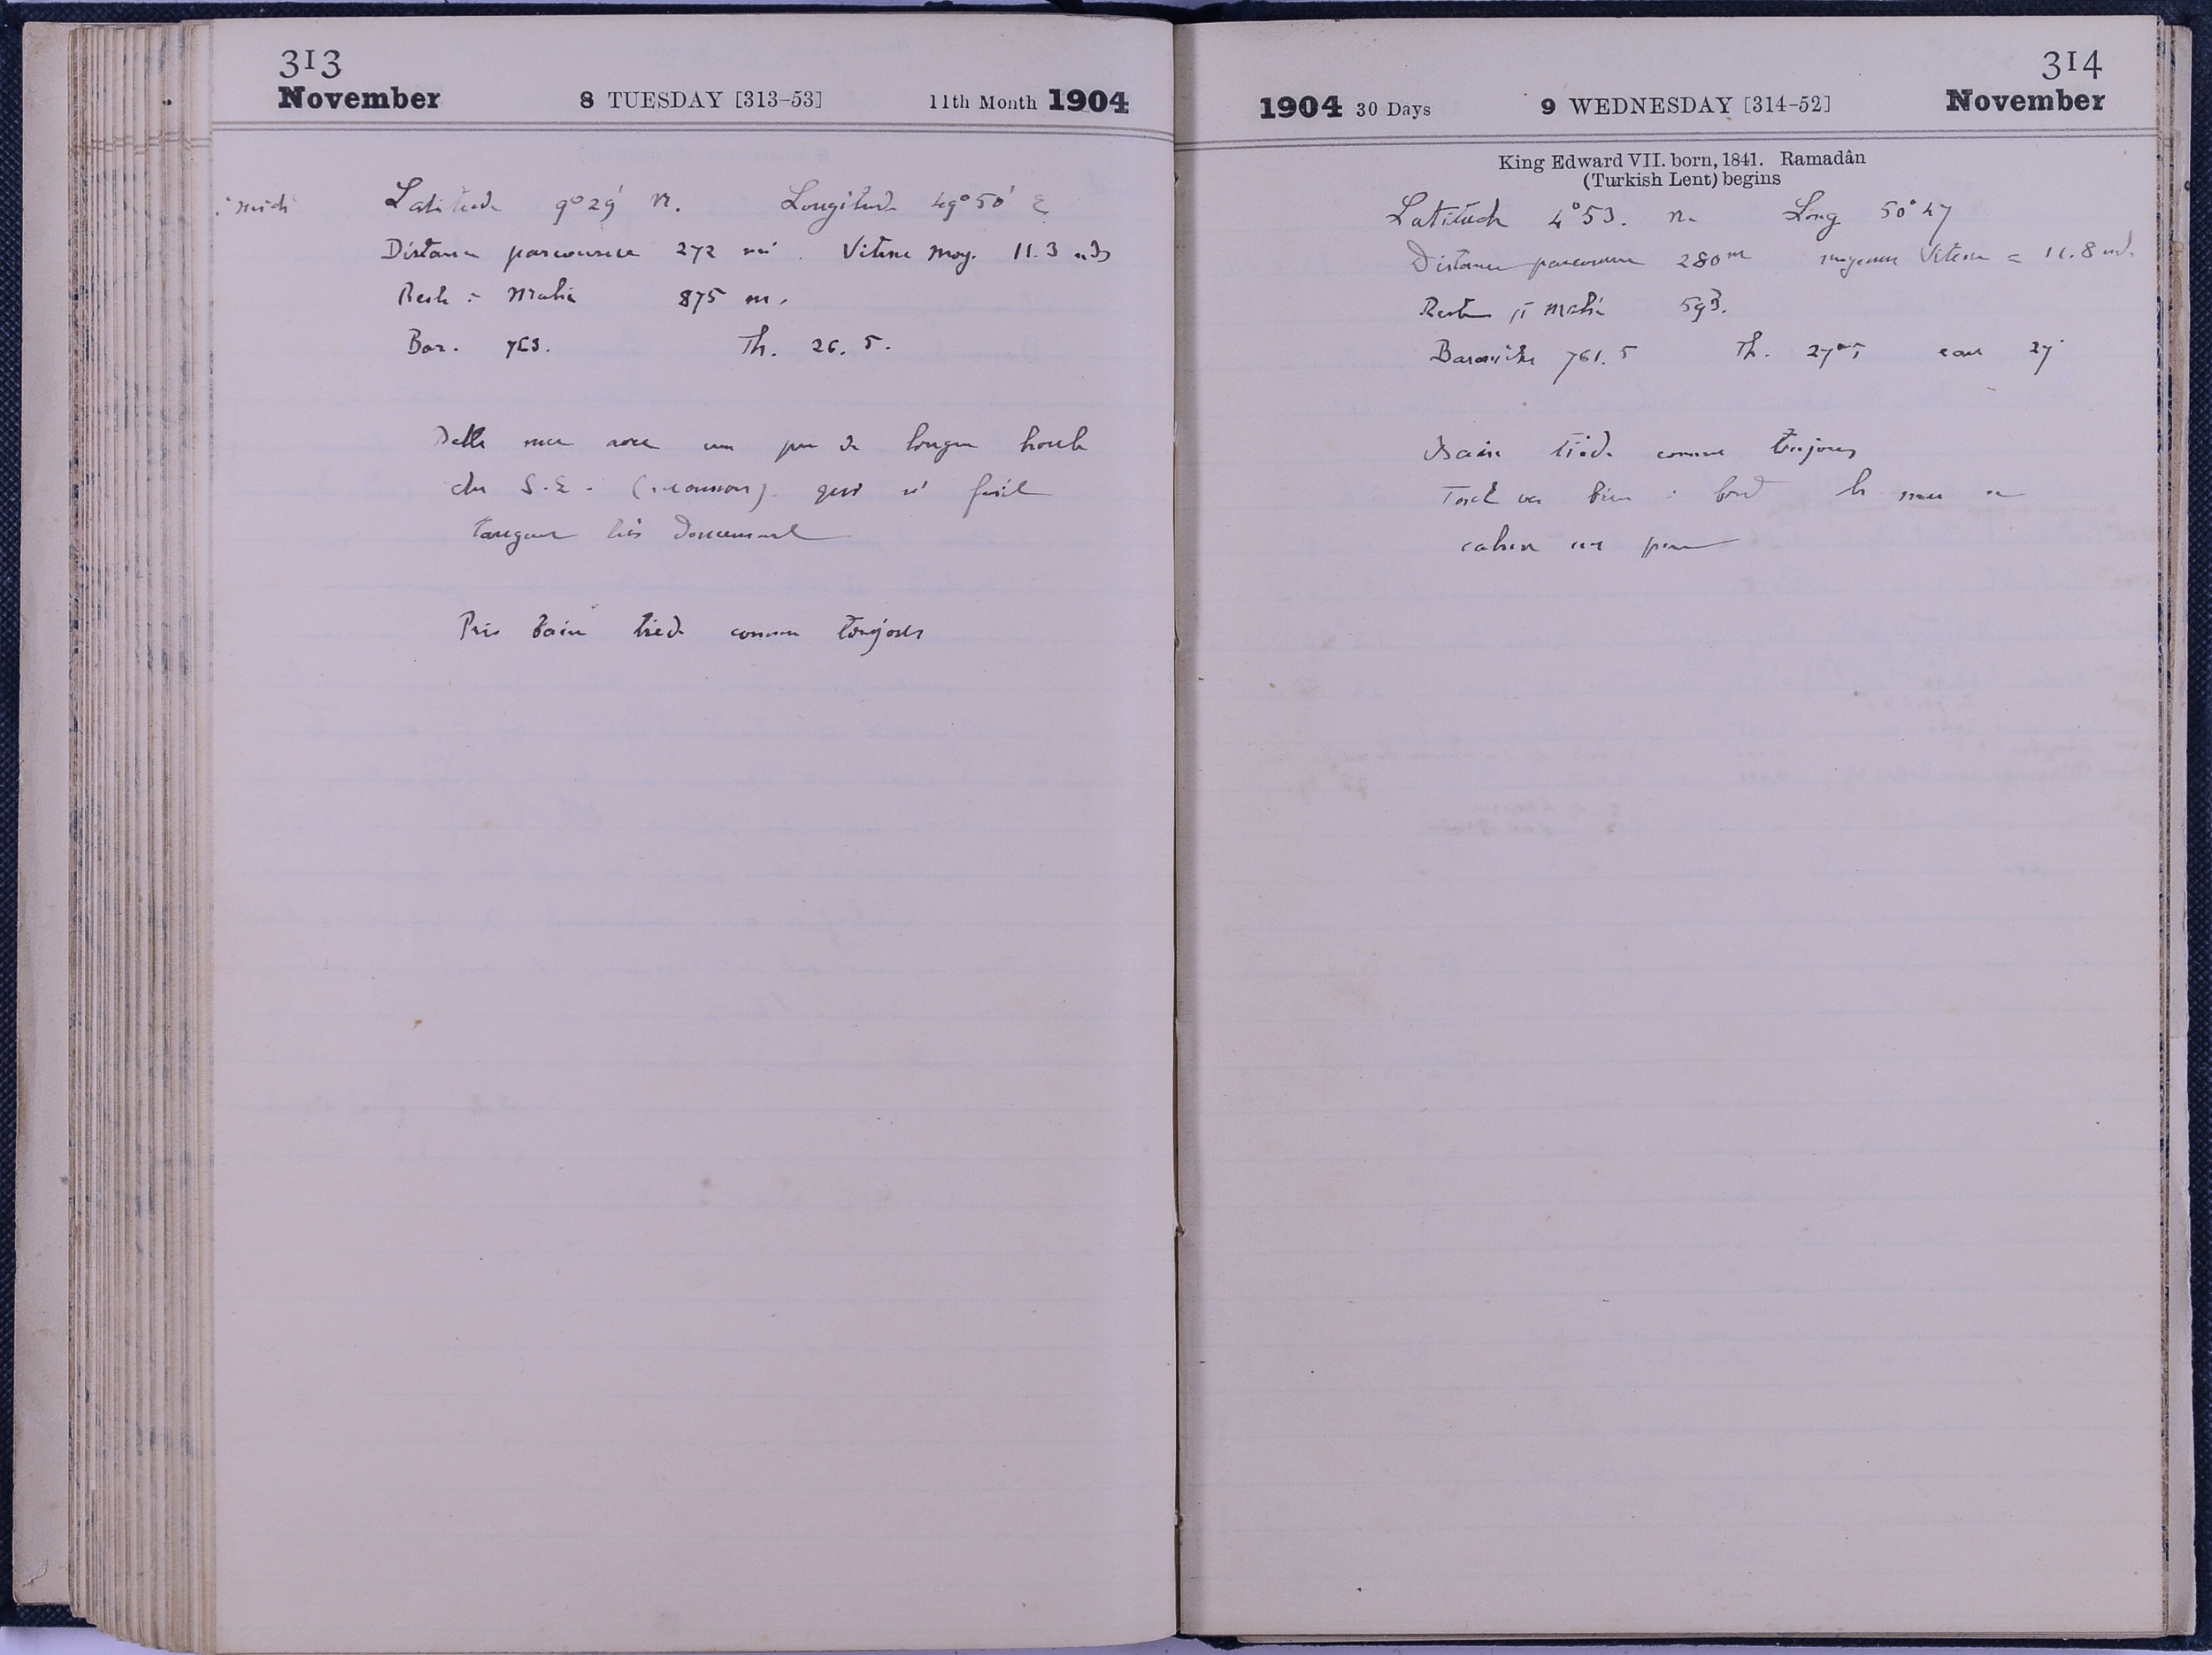 313
November 8 TUESDAY [313-53] 11th Month 1904
à midi Latitude 9°29' N. Longitude 49°50' E
Distance parcourue 272 mi. Vitesse moy. 11.3 nds
Reste à Mahé 875 m.
Bar. 763. Th. 26.5.
Belle mer avec un peu de longue houle
du S.E. (mousson) qui fait
tanguer très doucement
Pris bain tiède comme toujours
314
1904 30 Days 9 WEDNESDAY [314-52] November
King Edward VII. born, 1841. Ramadân
(Turkish Lent) begins
Latitude 4°53. N. Long 50°47
Distance parcourue 280m moyenne Vitesse = 11.8 nds
Reste à Mahé 593.
Baromètre 761.5 Th. 27°5 eau 27
Bain tiède comme toujours
Tout va bien à bord la mer se
calme un peu